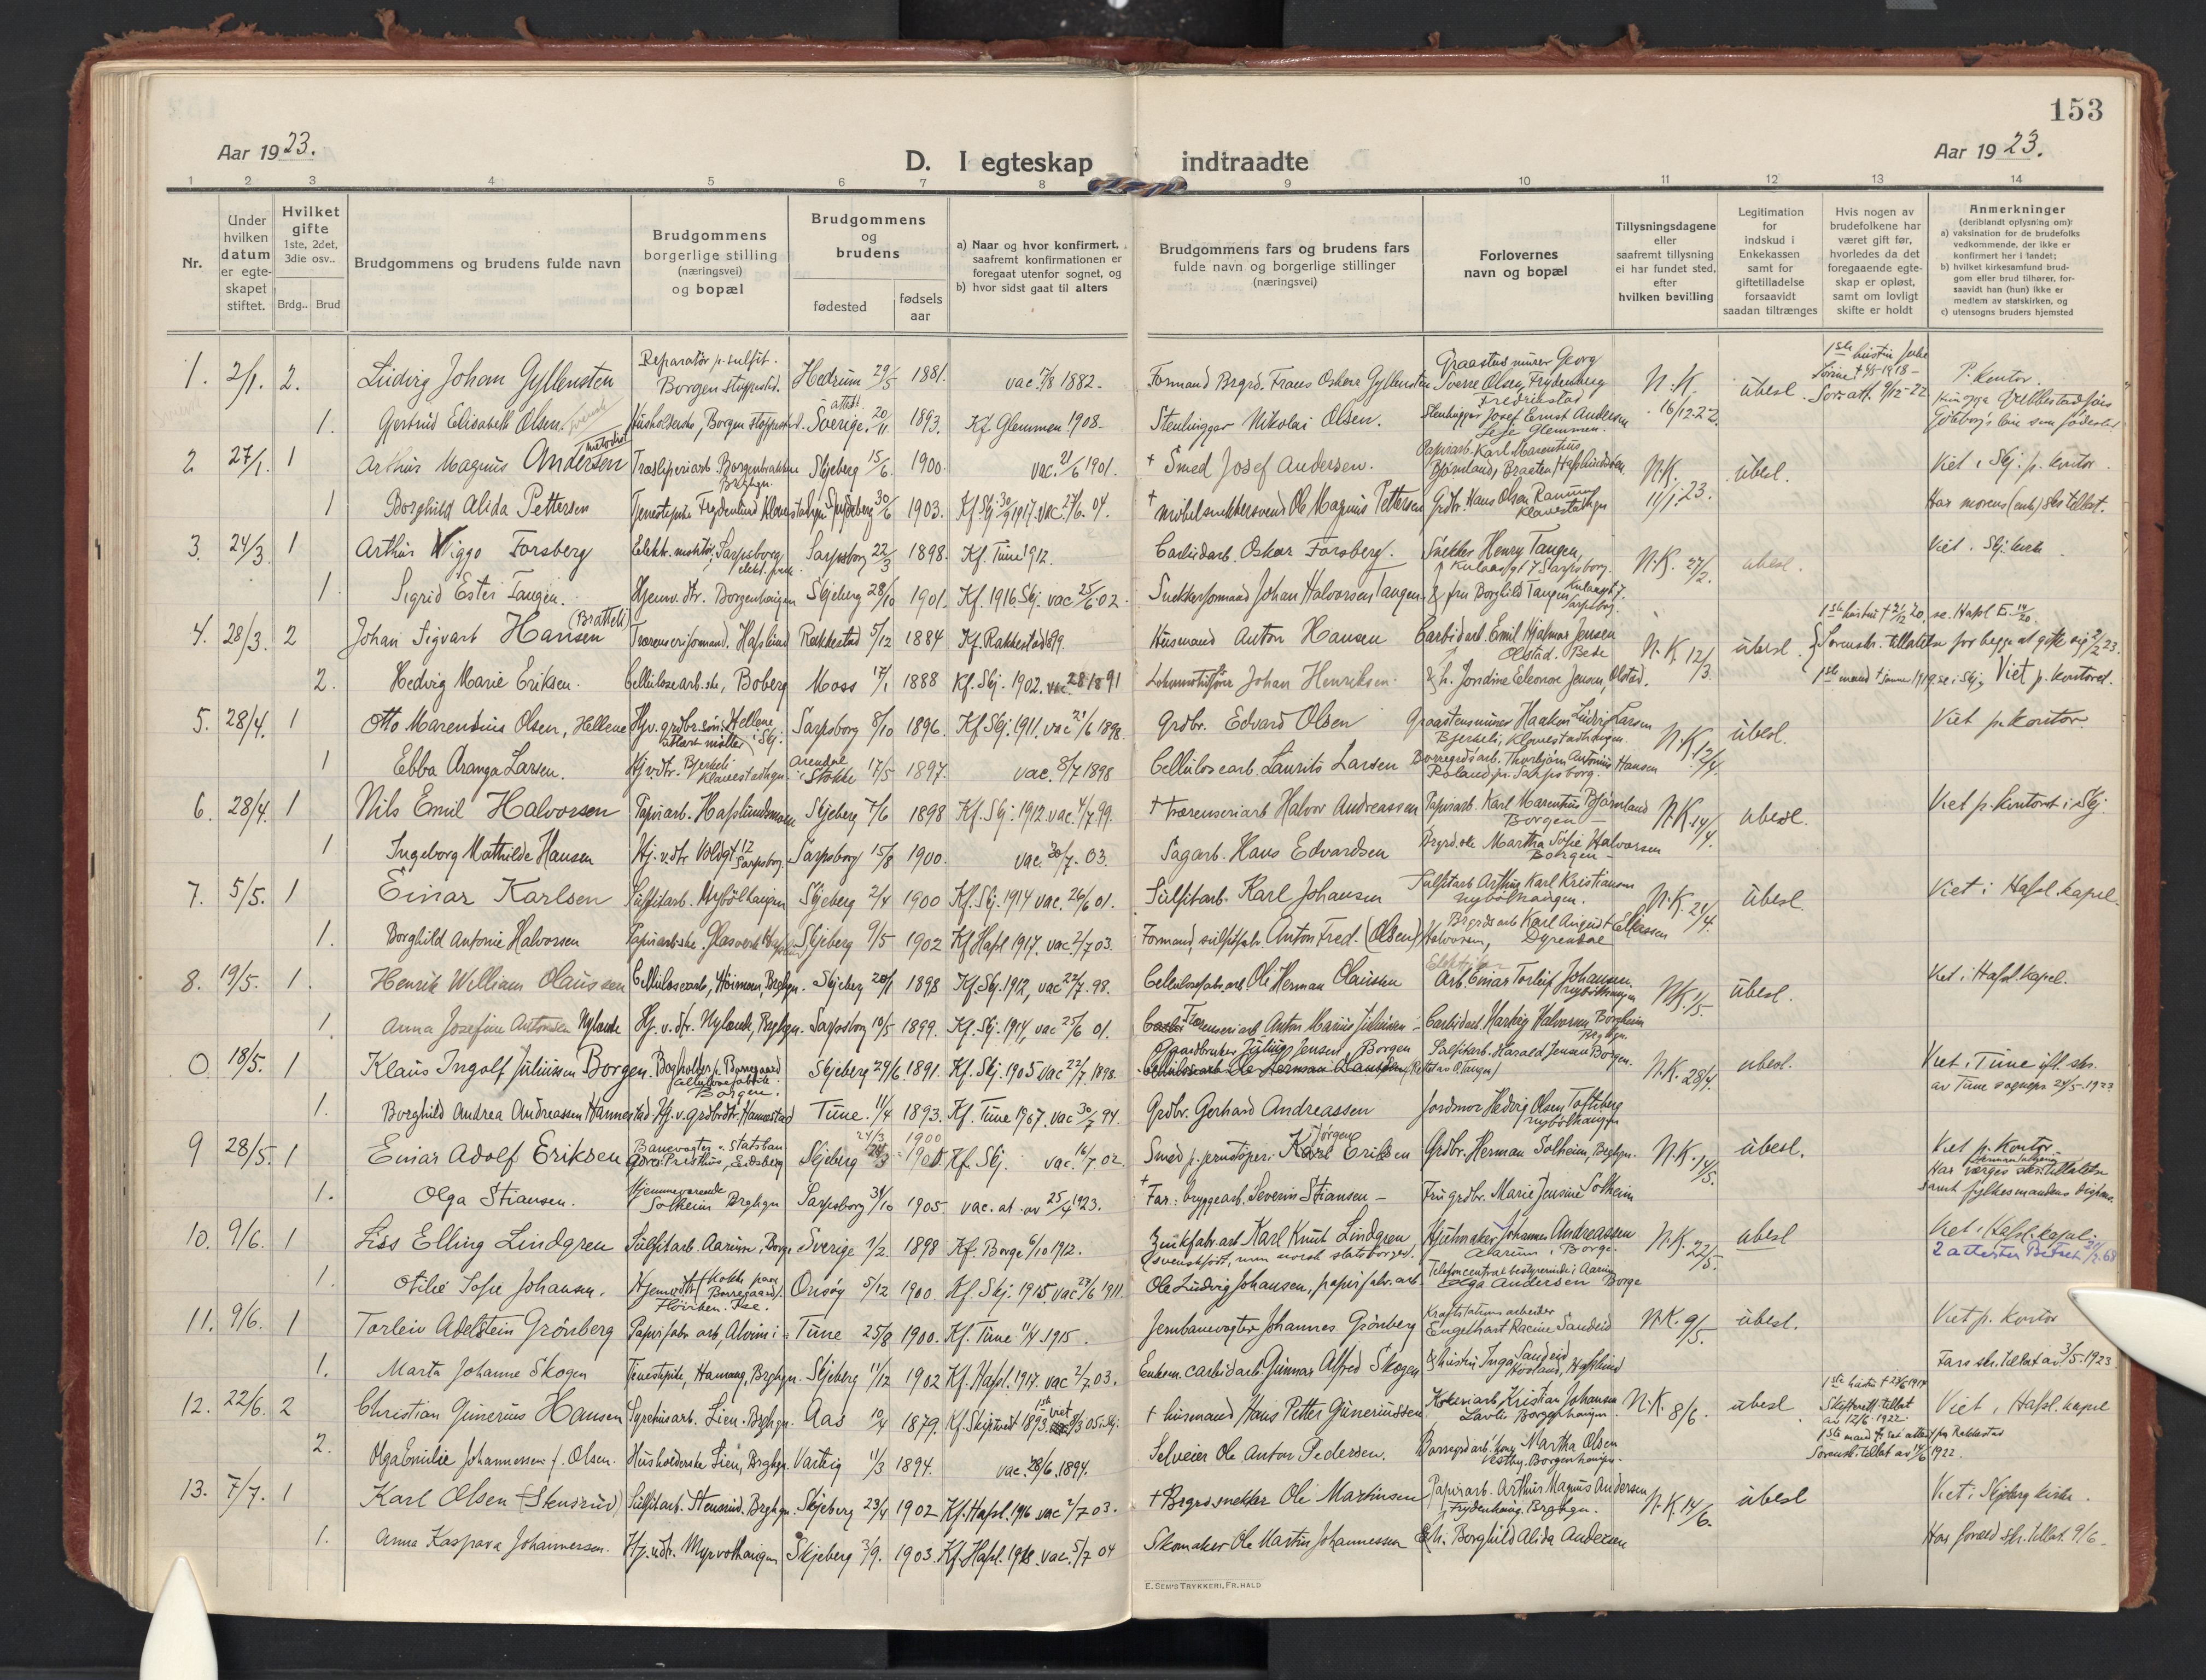 153
Aar 1923.
D. I egteskap indtraadte
Aar 1923.
1 2 3 4 5 6 7 8 9 10 11 12 13 14
Nr.
Under hvilken datum er egteskapet stiftet.
Hvilket gifte 1ste, 2det, 3die osv..
Brdg.. Brud
Brudgommens og brudens fulde navn
Brudgommens borgerlige stilling (næringsvei) og bopæl
Brudgommens og brudens
fødested
fødsels aar
a) Naar og hvor konfirmert, saafremt konfirmationen er foregaat utenfor sognet, og
b) hvor sidst gaat til alters
Brudgommens fars og brudens fars fulde navn og borgerlige stillinger (næringsvei)
Forlovernes navn og bopæl
Tillysningsdagene eller saafremt tillysning ei har fundet sted, efter hvilken bevilling
Legitimation for indskud i Enkekassen samt for giftetilladelse forsaavidt saadan tiltrænges
Hvis nogen av brudefolkene har været gift før, hvorledes da det foregaaende egteskap er opløst, samt om lovligt skifte er holdt
Anmerkninger (deriblandt oplysning om):
a) vaksination for de brudefolks vedkommende, der ikke er konfirmert her i landet;
b) hvilket kirkesamfund brudgom eller brud tilhører, forsaavidt han (hun) ikke er medlem av statskirken, og
c) utensogns bruders hjemsted
1. 2/1. 2. Ludvig Johan Gyllensten Reparatør p. sulfit. Borgen stoppested. Hedrum 29/5 1881. vac. 17/8 1882. Formand Brgrd. Frans Oskar Gyllensten Graastensmurer Georg Sverre Olsen, Frydenberg Fredrikstad N.K. 16/12-22. übesl. P. kontor.
1. Gjertrud Elisabeth Olsen Husholderske, Borgen stoppested. Sverige 20/11 1893. Kf. Glemmen 1908. Stenhugger Nikolai Olsen. Stenhugger Josef Ernst Andersen Glemmen.
2 27/1. 1 Arthur Magnus Andersen metodist Træsliperiarb. Borgenbrakken Brghgn. Skjeberg 15/6 1900. vac. 21/6 1901. † Smed Josef Andersen. Papirarb. Karl Marentius Bjørnland, Braaten, Hafslundsøen N.K. 11/1-23. übesl. Viet i Skj. p. kontor.
1 Borghild Alida Pettersen Tjenestepike Frydenlund Klavestadhgn Skjeberg 30/6 1903. Kf. Skj. 30/9 1917. vac. 27/6. 04. † møbelsnekkersvend Ole Magnus Pettersen Grdbr. Hans Olsen Klavestadhgn Har morens (enke) skr. tillat.
3. 24/3. 1 Arthur Wiggo Forsberg Elektr. montør, Sarpsborg Sarpsborg 22/3 1898. Kf. Tune 1912. Carbidarb. Oskar Forsberg. Snekker Henry Tangen, Kulaasgt 7 Sarpsborg. N.K. 27/2. übesl. Viet i Skj. kirke
1. Sigrid Ester Tangen. Hjemv. dtr. Borgenhaugen Skjeberg 28/10 1901. Kf. 1916 Skj. vac 25/6 02. Snekkerformand Johan Halvorsen Tangen & fru Borghild Tangen Kulaasgt 7. Sarpsborg.
4. 28/3. 2 Johan Sigvart Hansen (Bratteli) Trærenseriformand. Hafslund Rakkestad 5/12 1884 Kf. Rakkestad 1899. Husmand Anton Hansen Carbidarb. Emil Hjalmar Jensen Olstad. N.K. 12/3. übesl. 1ste hustru † 21/12 20, se. Hafsl.
2. Hedvig Marie Eriksen. Cellulosearb.ske, Boberg Moss 17/1 1888 Kf. Skj. 1902. vac. 28/8 91 Lokomotivfører Johan Henriksen. & h. Jondine Eleonore Jensen, Olstad. 1ste mand † Viet p. kontoret.
5. 28/4. 1 Otto Marentius Olsen, Hellene Hjv. grdbr. søn. Hellene i Skj. Sarpsborg 8/10 1896. Kf. Skj. 1911. vac 21/6 1898. Grdbr. Edvard Olsen Graastensmurer Haakon Ludvig Larsen Bjerkeli, Klavestadhaugen. N.K. 12/4. übesl. Viet p. kontor.
1 Ebba Aranga Larsen. Hjv. dtr. Bjerkeli Klavestadhgn. Stokke 17/5 1897. vac. 8/7 1898 Cellulosearb. Laurits Larsen Borregrdsarb. Thorbjørn Antonius Hansen Roland pr. Sarpsborg.
6. 28/4. 1 Nils Emil Halvorsen Papirarb. Hafslundsøen Skjeberg 7/6 1898 Kf. Skj. 1912. vac. 4/7 99. † Trærenseriarb Halvor Andreassen Papirarb. Karl Marentius Bjørnland Borgen N.K. 14/4. übesl. Viet p. kontoret i Skj.
1 Ingeborg Mathilde Hansen Hj. v. dtr Voldgt 12 Sarpsborg Sarpsborg 15/8 1900. vac. 30/7. 03. Sagarb. Hans Edvardsen Martha Sofie Halvorsen Borgen
7. 5/5. 1 Einar Karlsen Sulfitarb. Nybølhaugen Skjeberg 2/4 1900 Kf. Skj. 1914 vac. 26/6 01. Sulfitarb. Karl Johansen Sulfitarb Arthur Karl Kristiansen Nybølhaugen. N.K. 21/4. übesl. Viet i Hafsl. kapel.
1. Borghild Antonie Halvorsen Papirarb.ske. Glasverket Skjeberg 9/5 1902 Kf Hafsl 1917. vac 2/7 03. Formand, sulfitfabr. Anton Fred. (Olsen) Halvorsen, Brgrdsarb Karl August Eliassen Dyrendal
8. 19/5. 1. Henrik William Olaussen Cellulosearb, Brghgn. Skjeberg 28/1 1898 Kf. Skj. 1912, vac 22/7. 98. Cellulosefabr.arb. Ole Herman Olaussen Arb. Einar Torleif Johansen Nybølhaugen N.K. 1/5. übesl. Viet i Hafsl. kapel.
1. Anna Josefine Antonsen Nylende Hj. v. dtr. Nylende, Brghgn. Sarpsborg 10/5 1899. Kf. Skj. 1914, vac 25/6 01. Trærenseriarb Anton Marius Juliussen Carbidarb. Hartvig Halvorsen Borgheim Brghgn.
0 18/5. 1 Klaus Ingolf Juliussen Borgen. Bogholder p. Borregaard Cellulosefabrik. Borgen. Skjeberg 24/6 1891. Kf. Skj. 1905 vac 22/7 1898. Gaardbruker Julius Jensen Borgen Sulfitarb. Harald Jensen Borgen. N.K. 28/4. übesl. Viet i Tune ifl. skr. av Tune sogneprs 24/5-1923
1. Borghild Andrea Andreassen Hannestad Hj. v. grdbrdtr. Hannestad Tune. 11/4 1893. Kf. Tune 1907. vac 30/7 94. Grdbr. Gerhard Andreassen Jordmor Hedvig Olsen Tofteberg Nybølhaugen
9 28/5. 1 Einar Adolf Eriksen Banevogter v. Statsban Presthus, Eidsberg Skjeberg 24/3 1900 Kf. Skj. vac. 16/7 02. Smed p. jernstøperi Jørgen Eriksen Grdbr. Herman Solheim, Brghgn. N.K. 14/5. übesl. Viet p. kontor Har verges skr. tillatelse samt fylkesmandens
1. Olga Stiansen. Hjemmeværende Solheim Brghgn Sarpsborg 31/10 1905. vac. at. av 25/4 1923. † Far. bryggearb. Severin Stiansen – Fru grdbr. Marie Jensine Solheim
10. 9/6. 1 Liss Elling Lindgren Sulfitarb. Aarum, Borge Sverige 1/2 1898 Kf. Borge 6/10 1912. Zinkfabr.arb Karl Knut Lindgren (svenskfødt, nu norsk statsborger) Hjulmaker Johannes Andreassen Aarum i Borge. N.K. 22/5. übesl Viet i Hafsl. kapel.
1. Otilie Sofie Johansen. Hjemvdtr. (Kokke paa Borregaard) Onsøy 5/12 1900. Kf. Skj. 1915. vac 27/6 1911. Ole Ludvig Johansen, papirfabr. arb. Telefoncentralbestyrerinde i Aarum Olga Andersen Borge
11. 9/6. 1 Torleiv Adelstein Grönberg Papirfabr arb, Alvim i Tune 25/8 1900. Kf. Tune 11/4 1915. Jernbanevogter Johannes Grönberg Kraftstationsarbeider Engelhart Racine Sandeid N.K. 9/5. übesl. Viet p. kontor
1. Marta Johanne Skogen Tjenestpike, Brghgn. Skjeberg 11/12 1902 Kf. Hafsl. 1917. vac 2/7 03. Enkem. carbidarb. Gunnar Alfred Skogen & hustru Inga Sandeid, Hafslund Fars skr. tillat av 3/5-1923
12. 22/6. 2 Christian Gunerius Hansen Syrehusarb. Lien. Brghgn. Aas 10/4 1879. Kf. Skiptvet 1893. † husmand Hans Petter Gunerius­sen Kokeriarb. Kristian Johansen Borgenhaugen. N.K. 8/6. übesl 1ste hustru † 23/6 1917 Skifterett. tillat av 12/6. 1922. Viet i Hafsl. kapel
2. Olga Emilie Johannessen f. Olsen. Husholderske Lien, Brghgn. Varteig 11/3 1894. vac. 28/6. 1894. Selveier Ole Anton Pedersen. Martha Olsen Vestby. Borgenhaugen.
13. 7/7. 1 Karl Olsen (Stensrud) Sulfitarb. Stensrud. Brghgn. Skjeberg 23/4 1902 Kf. Hafsl. 1916 vac 2/7 03. † Brgrd.snekker Ole Martinsen Papirarb. Arthur Magnus Andersen, Brghgn. N.K. 14/6. übesl Viet i Skjeberg kirke.
1. Anna Kaspara Johannessen. Hj. v. dtr. Myrvolhaugen Skjeberg 3/9. 1903. Kf. Hafsl. 1918. vac. 5/7 04 Skomaker Ole Martin Johannessen & h. Borghild Alida Andersen Har foræld. skr. tillat. 9/6.
E. SEM'S TRYKKERI, FR.HALD